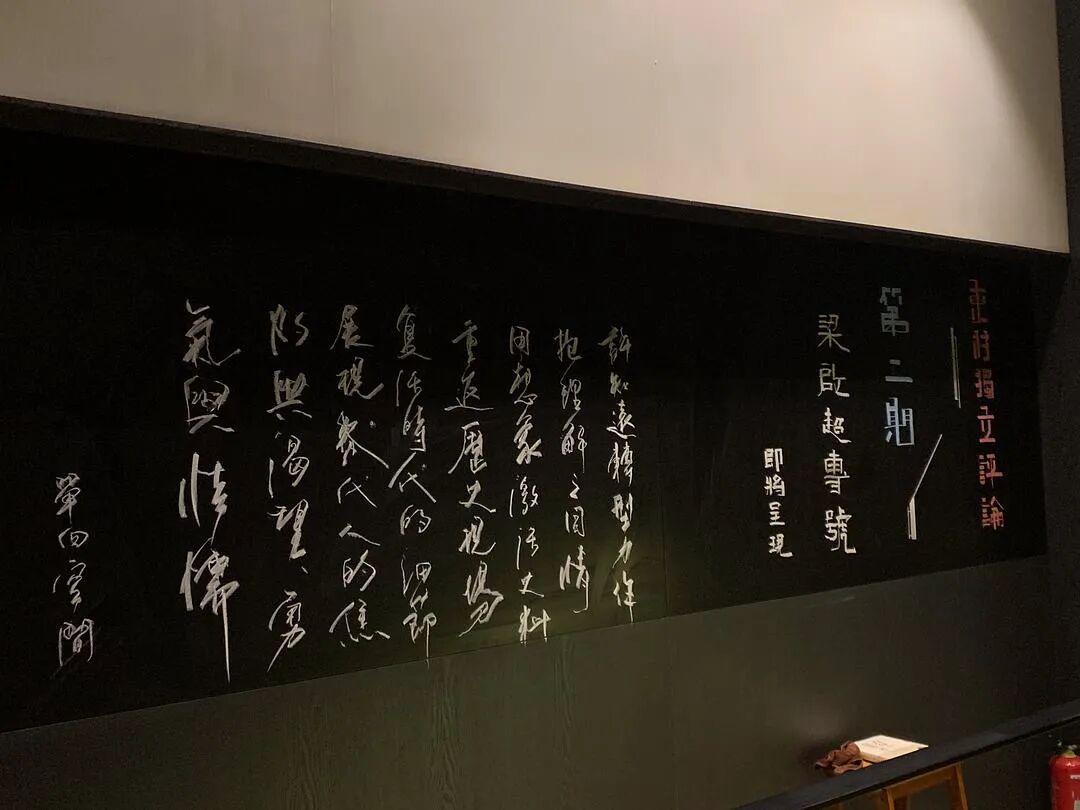 獨立評論
第二期
梁啟超專號
即將呈現
許知遠轉型力作
抱理解之同情
用想象激活史料
重返歷史現場
复活時代的細節
展現幾代人的焦
灼與渴望、勇
氣與情懷
單向空間